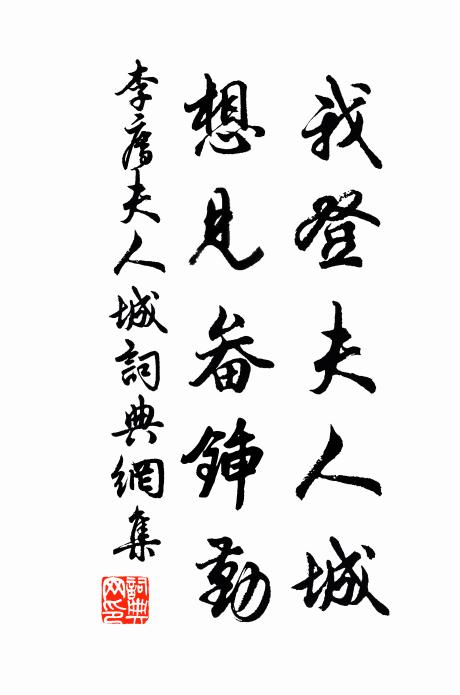 我登夫人城
想見畚鍤勤
李廌夫人城詞典網集
詞典网印